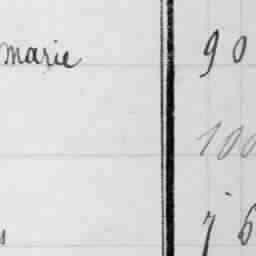 marie 90
100
76